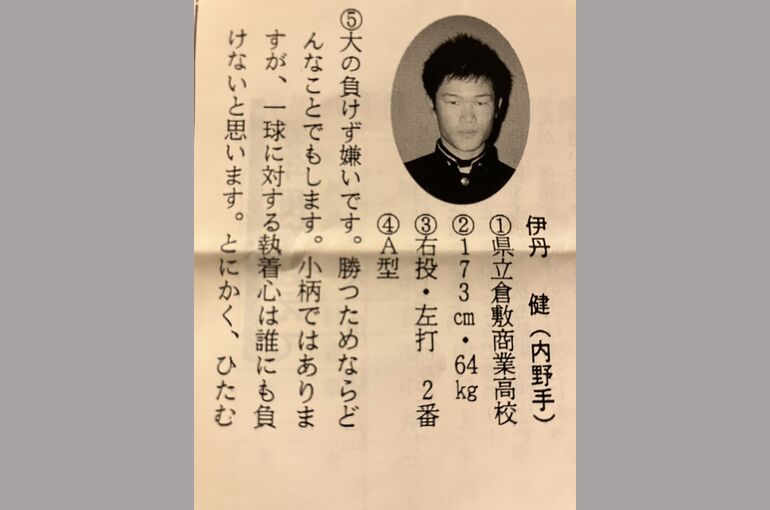 伊丹 健(内野手)
①県立倉敷商業高校
②173cm・64kg
③右投・左打 2番
④A型
⑤大の負けず嫌いです。勝つためならど
んなことでもします。小柄ではありま
すが、一球に対する執着心は誰にも負
けないと思います。とにかく、ひたむ